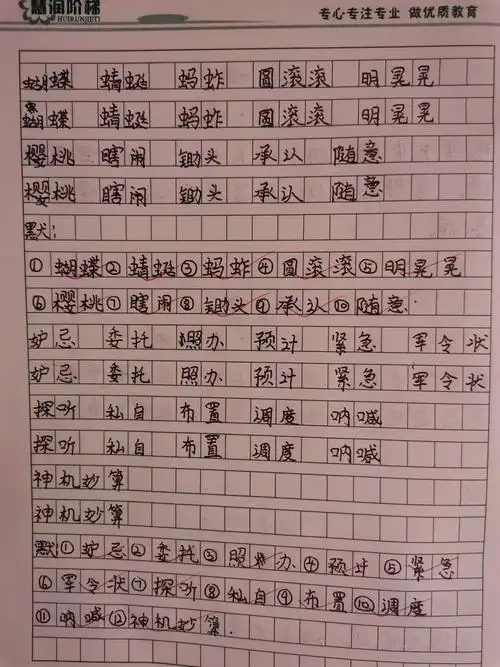 慧润阶梯 专心专注专业 做优质教育
HUIRUNJIETI
蝴蝶 蜻蜓 蚂蚱 圆滚滚 明晃晃
蝴蝶 蜻蜓 蚂蚱 圆滚滚 明晃晃
樱桃 瞎闹 锄头 承认 随意
樱桃 瞎闹 锄头 承认 随意
默:
①蝴蝶②蜻蜓③蚂蚱④圆滚滚⑤明晃晃
⑥樱桃⑦瞎闹⑧锄头⑨承认⑩随意.
妒忌 委托 照办 预计 紧急 军令状
妒忌 委托 照办 预计 紧急 军令状
探听 私自 布置 调度 呐喊
探听 私自 布置 调度 呐喊
神机妙算
神机妙算
默:①妒忌②委托③照办④预计⑤紧急
⑥军令状⑦探听⑧私自⑨布置⑩调度
⑪呐喊⑫神机妙算.